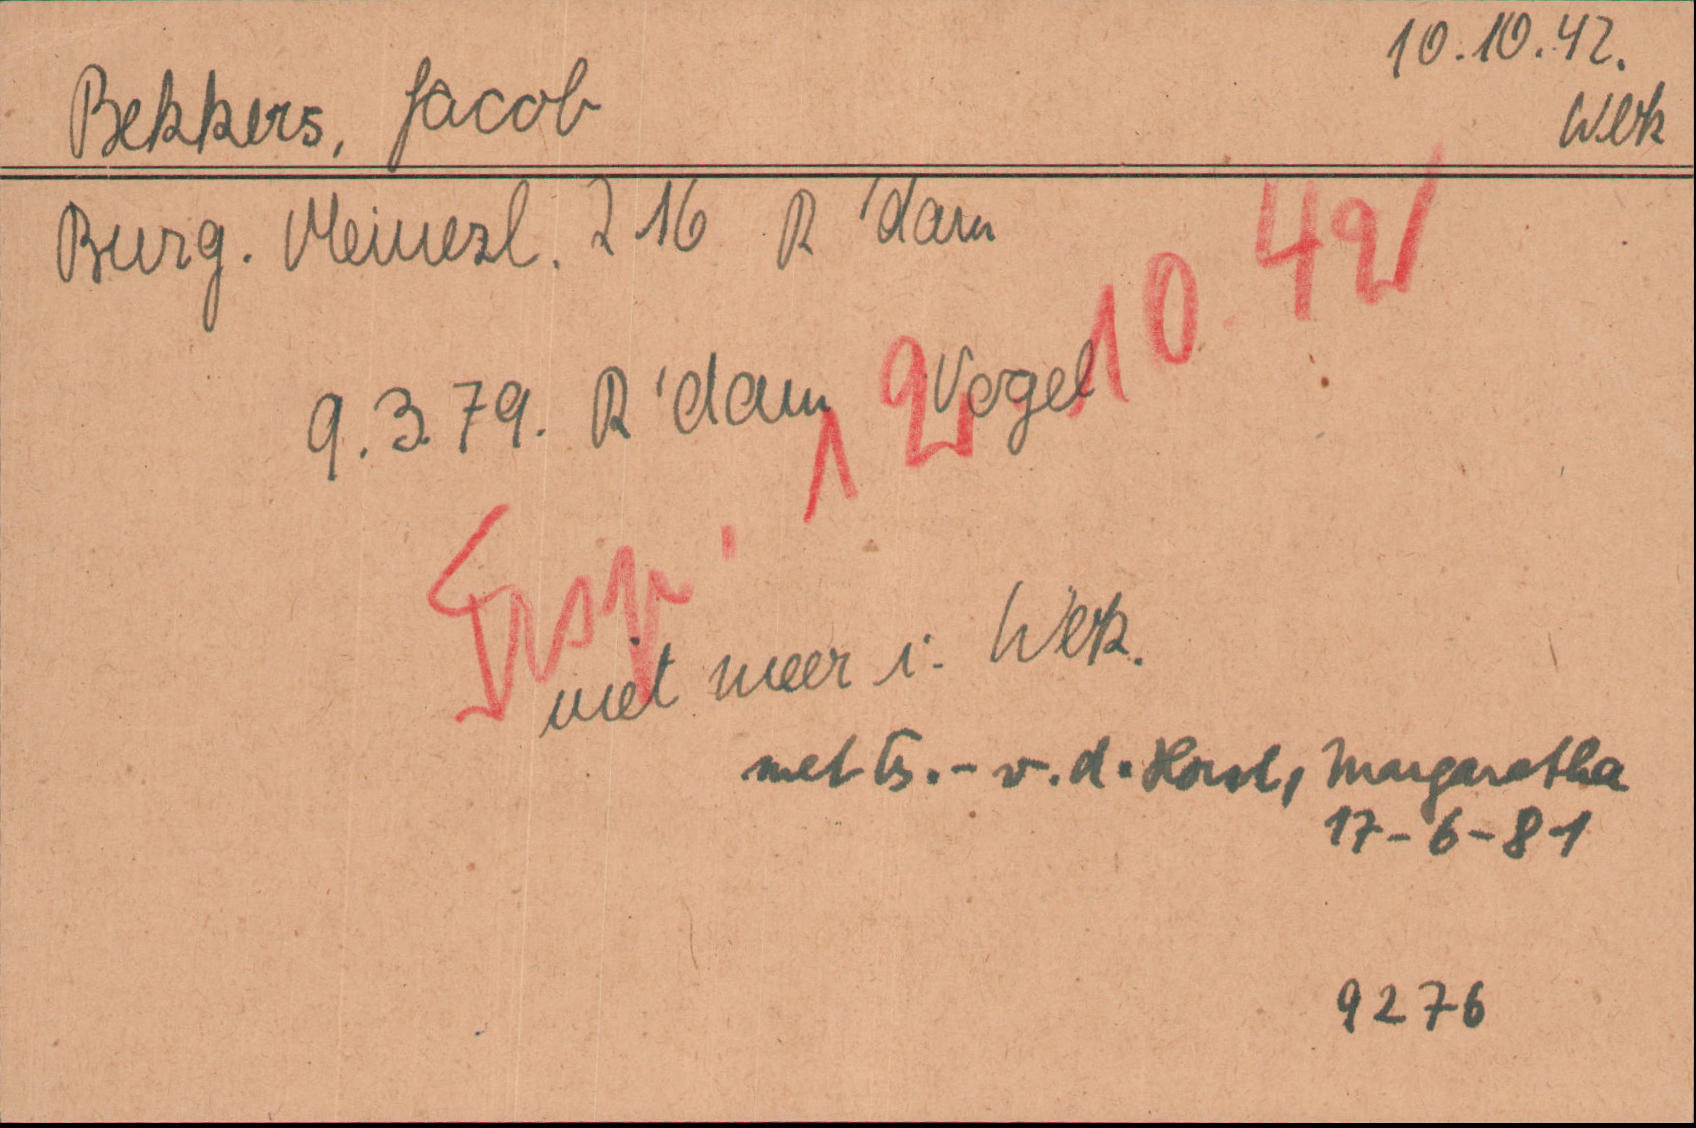 10.10.42.
Bekkers, Jacob
Wbk
Burg. Meinesl. 216 R'dam
9.3.79. R'dam Vogel
12 10.42
niet meer i. Wbk.
met Es.- v.d. Horst, Margaretha
17-6-81
9276